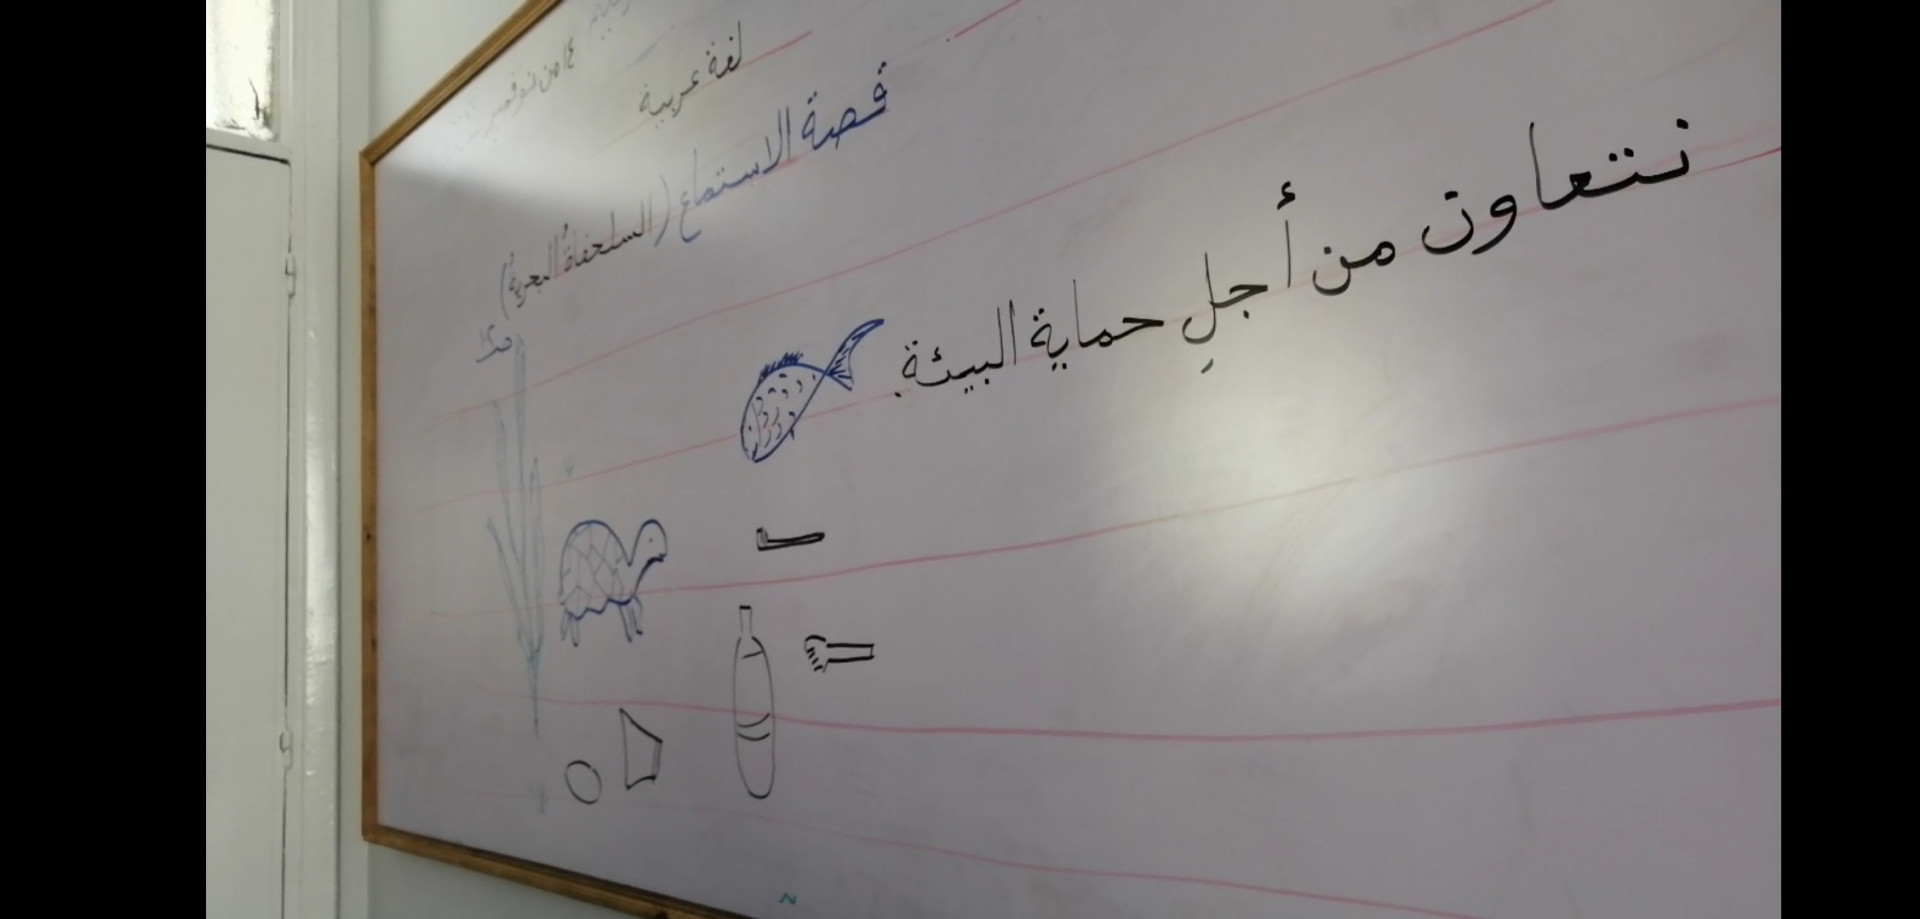 ١٤ من نوفمبر
لغة عربية
قصة الاستماع (السلحفاةُ البحريةُ)
نتعاون من أجلِ حماية البيئة.